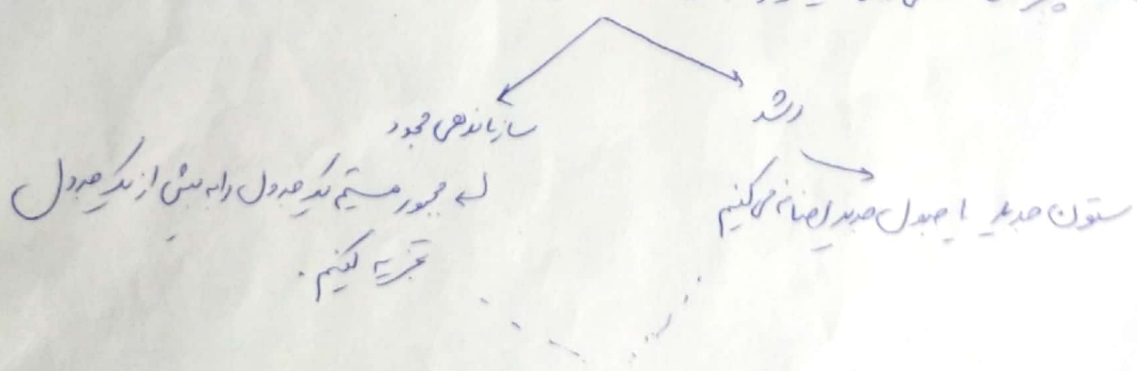 رشد
ستون جدید یا جدول جدید اضافه می کنیم
سازماندهی مجدد
مجبور هستیم یک جدول را به بیش از یک جدول
تجزیه کنیم.